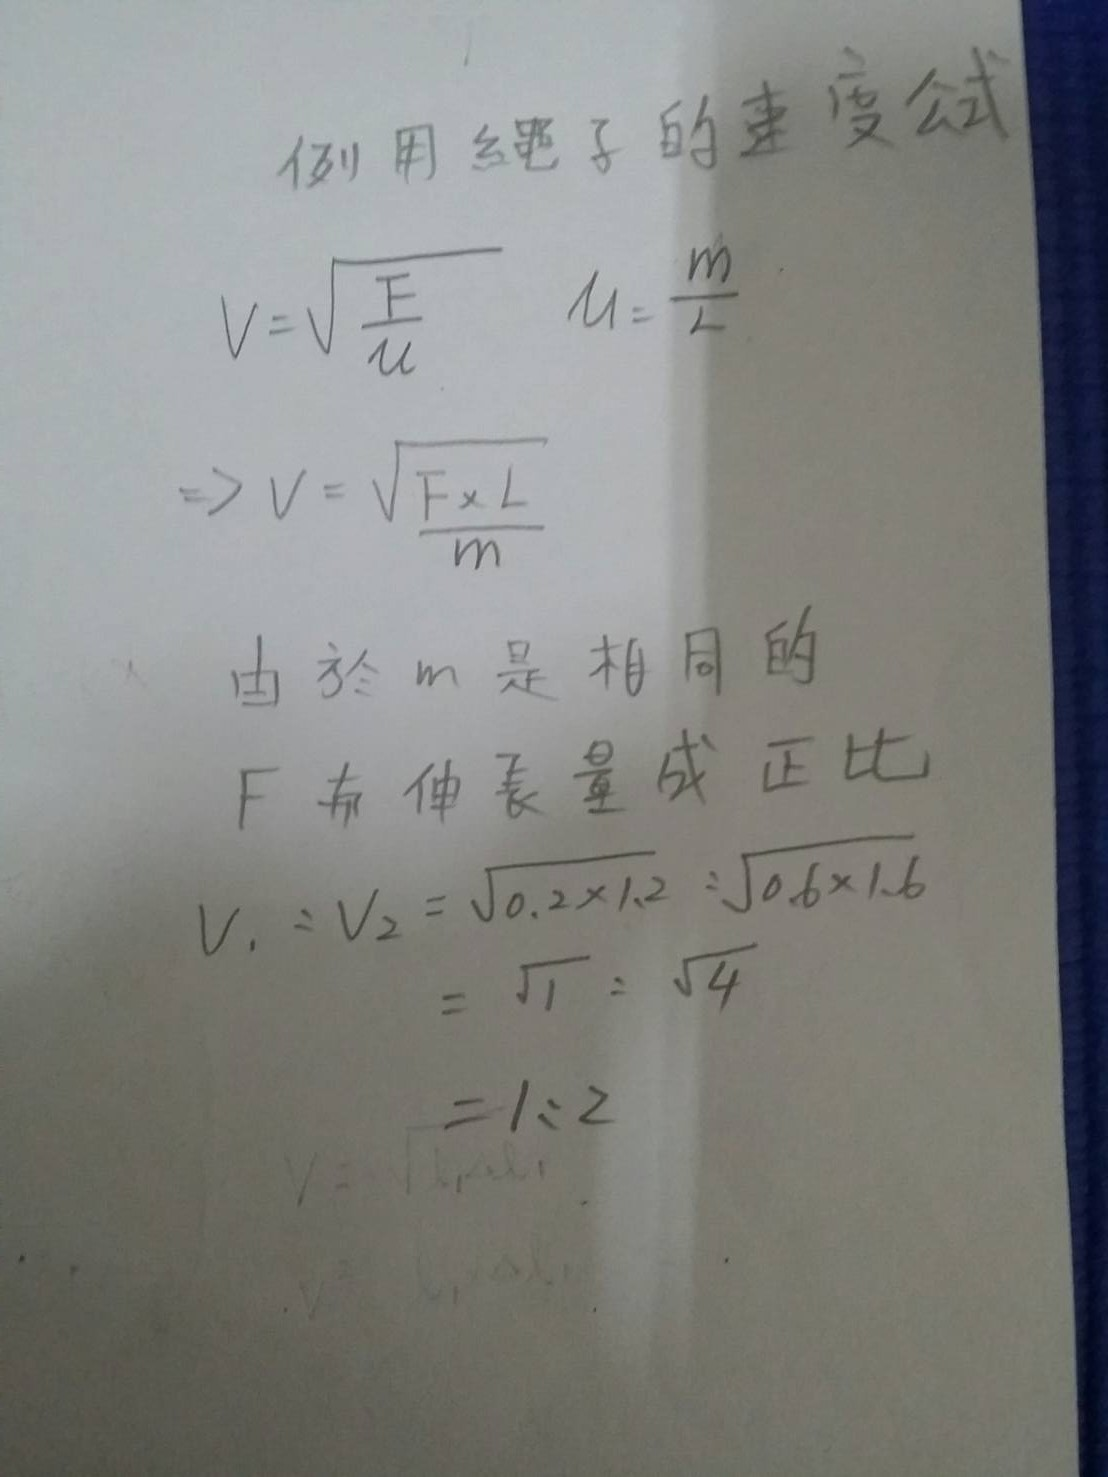 例用繩子的速度公式
V=√(F/u) u=m/L
=> V=√(F×L/m)
由於m是相同的
F為伸長量成正比
V₁:V₂=√0.2×1.2:√0.6×1.6
=√1:√4
=1:2